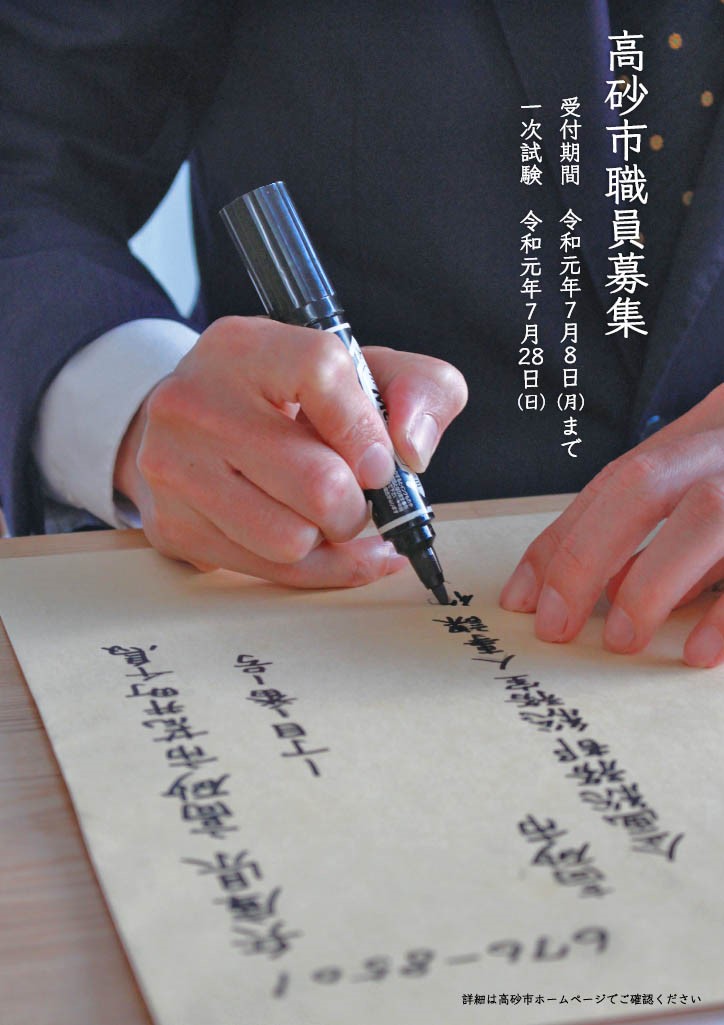 高砂市職員募集
受付期間 令和元年7月8日(月)まで
一次試験 令和元年7月28日(日)
676-8501
兵庫県高砂市荒井町千鳥
一丁目一番一号
高砂市
企画総務部総務室人事課
詳細は高砂市ホームページでご確認ください